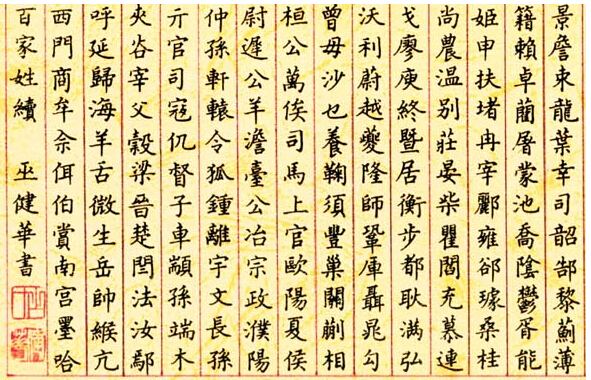 景詹束龍葉幸司韶郜黎薊薄
籍賴卓藺屠蒙池喬陰鬱胥能
姬申扶堵冉宰酈雍郤璩桑桂
尚農温别莊晏柴瞿閻充慕連
戈廖庾終暨居衡步都耿满弘
沃利蔚越夔隆師鞏庫聶晁勾
曾毋沙乜養鞠須豐巢關蒯相
桓公萬俟司馬上官歐陽夏侯
尉遲公羊澹臺公冶宗政濮陽
仲孫軒轅令狐鍾離宇文長孫
亓官司寇仉督子車顓孫端木
夾谷宰父穀梁晉楚閆法汝鄢
呼延歸海羊舌微生岳帥緱亢
西門商牟佘佴伯賞南宫墨哈
百家姓續 巫健華書